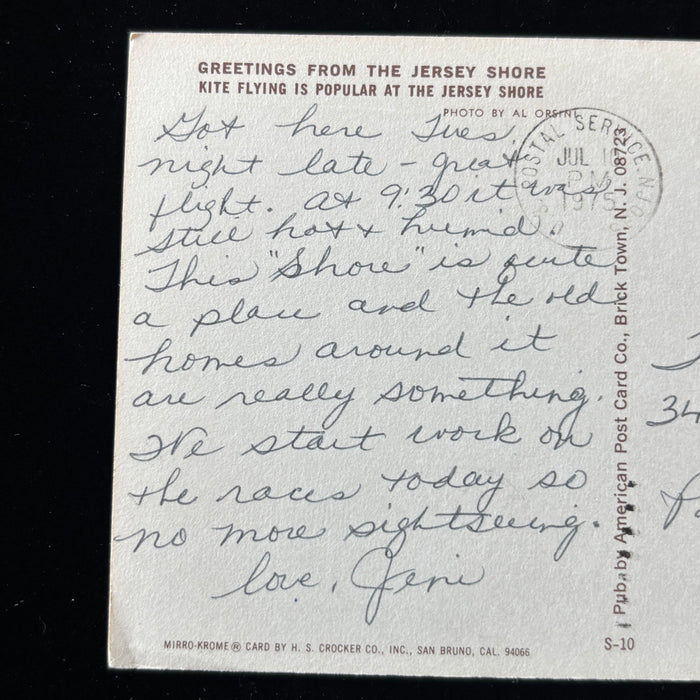 GREETINGS FROM THE JERSEY SHORE
KITE FLYING IS POPULAR AT THE JERSEY SHORE
PHOTO BY AL ORSINI
Got here Tues.
night late - great
flight. At 9:30 it was
still hot & humid.
This "Shore" is quite
a place and the old
homes around it
are really something.
We start work on
the races today so
no more sightseeing.
love, Jeni
MIRRO-KROME® CARD BY H. S. CROCKER CO., INC., SAN BRUNO, CAL. 94066
POSTAL SERVICE
JUL
PM
1975
Pub. by American Post Card Co., Brick Town, N. J. 08723
S-10
34